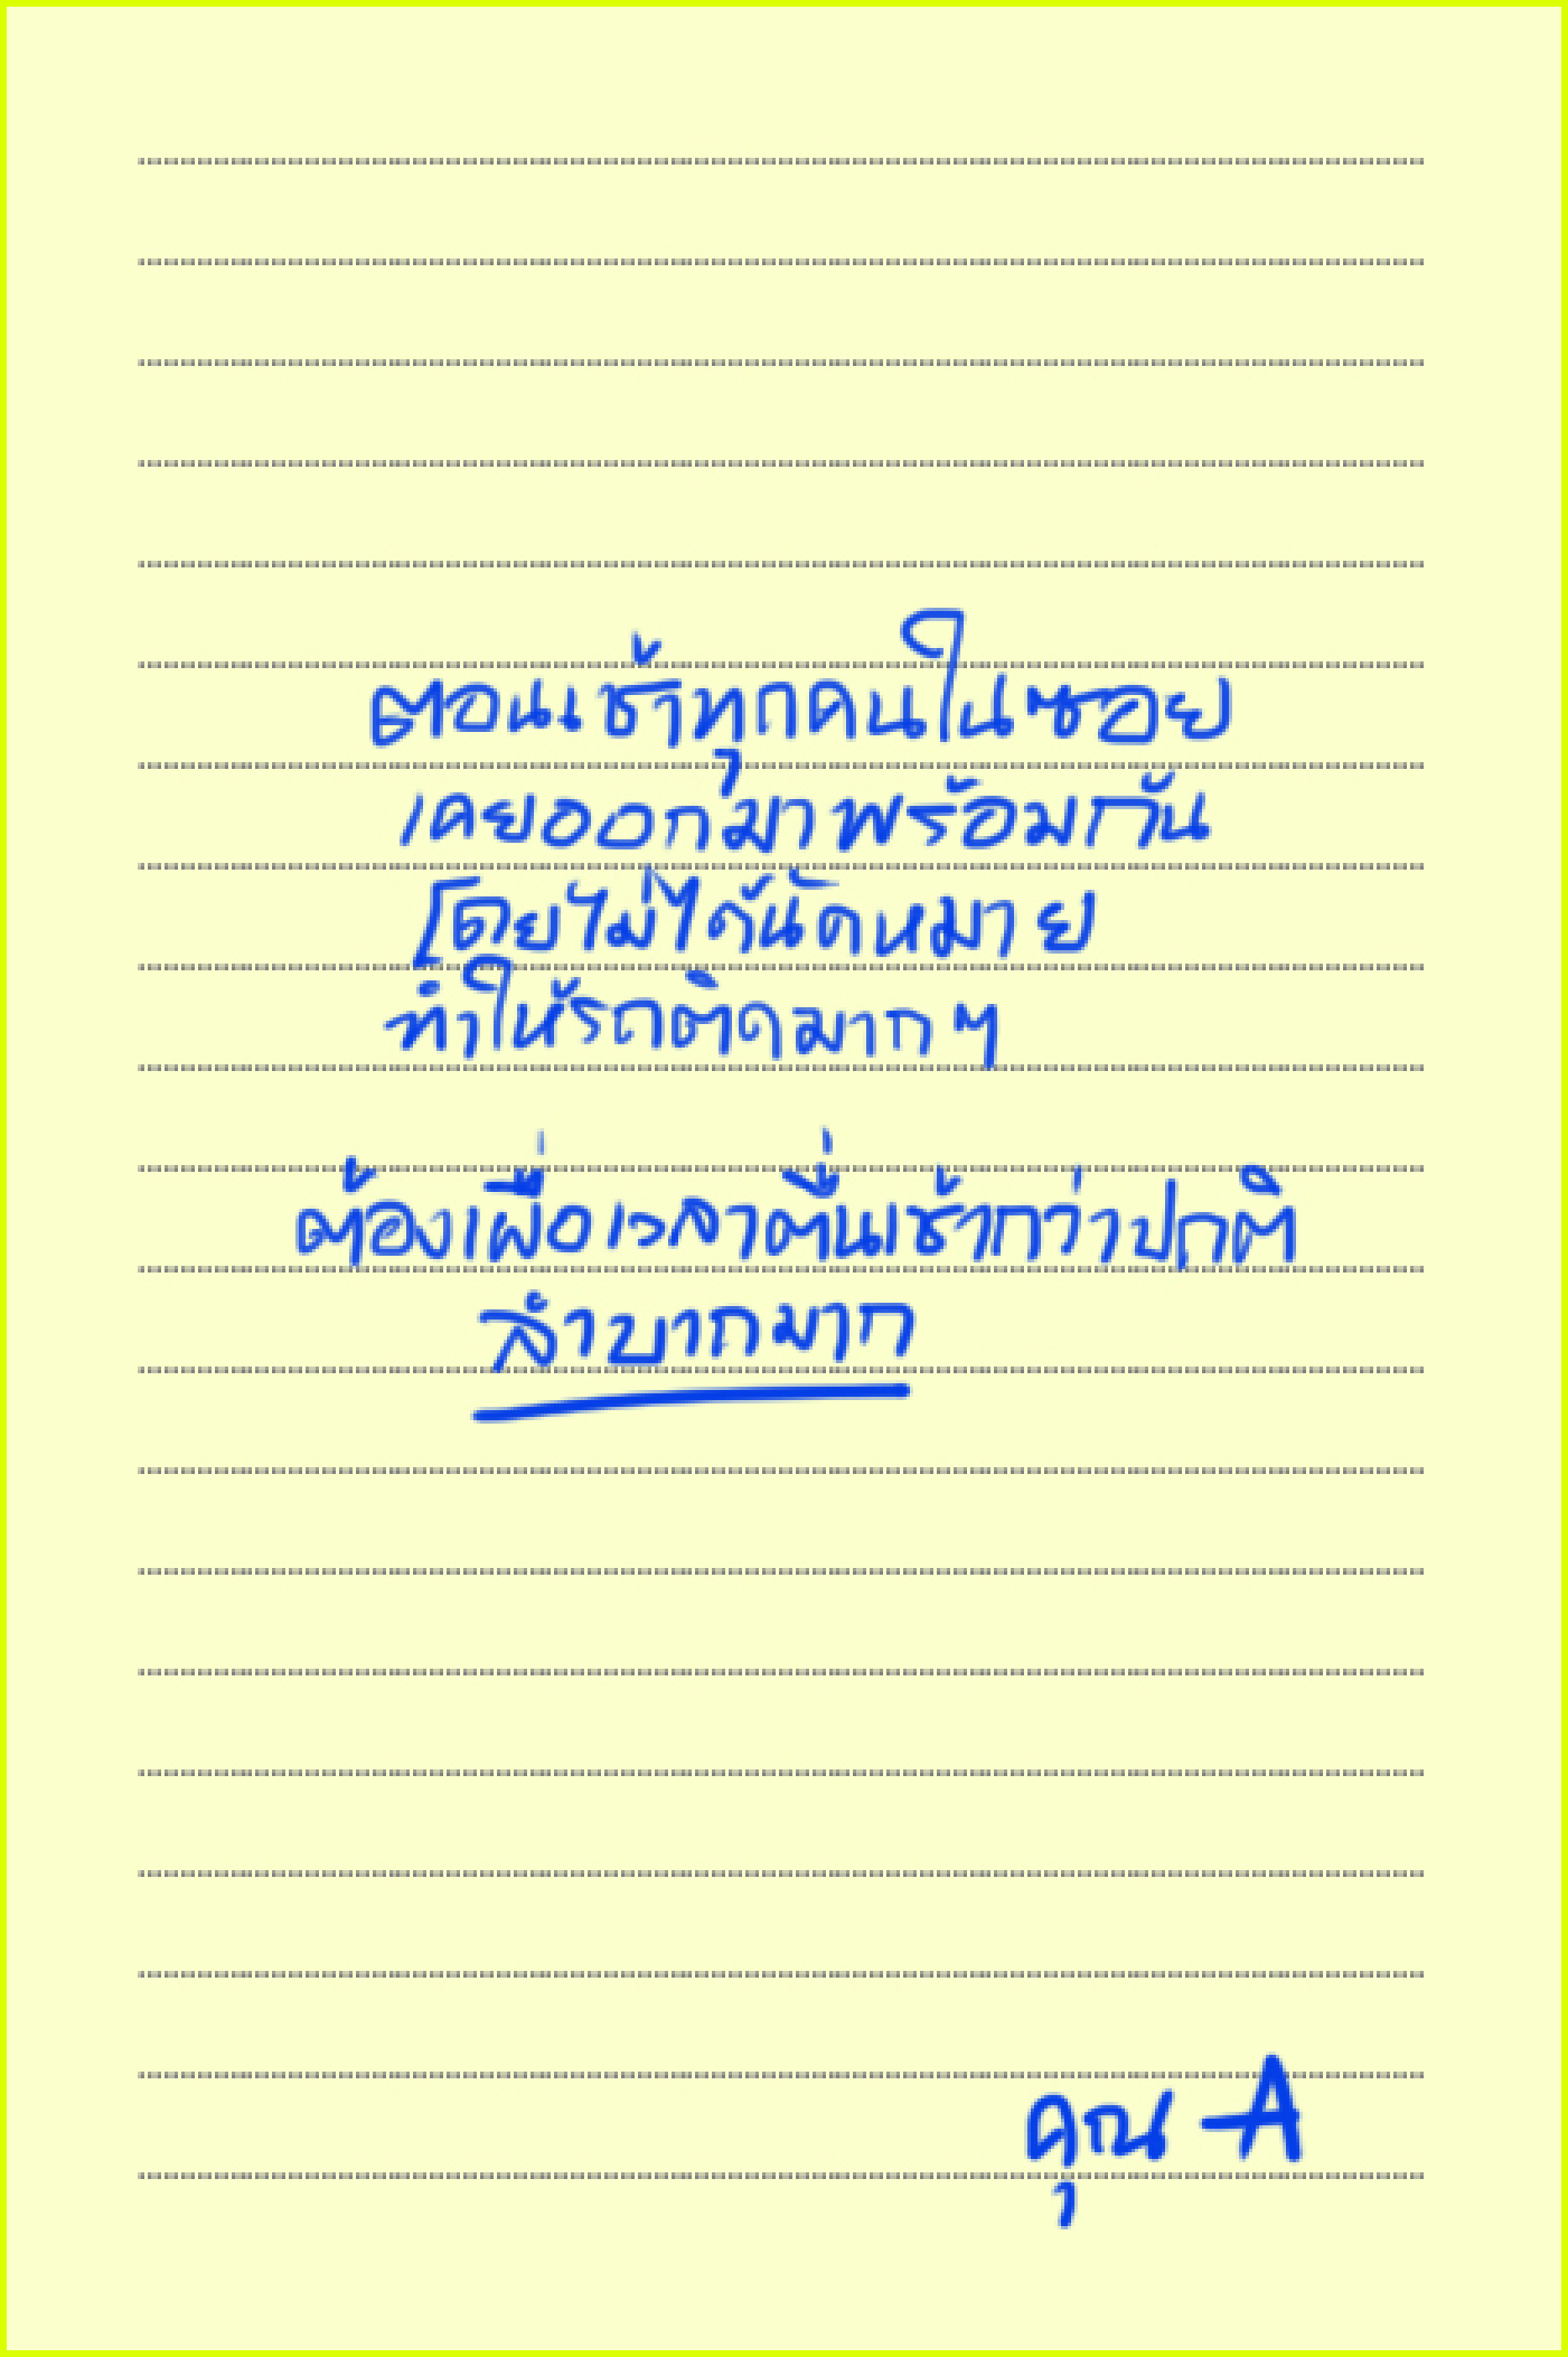 ตอนเช้าทุกคนในซอย
เคยออกมาพร้อมกัน
โดยไม่ได้นัดหมาย
ทำให้รถติดมากๆ
ต้องเผื่อเวลาตื่นเช้ากว่าปกติ
ลำบากมาก
คุณ A